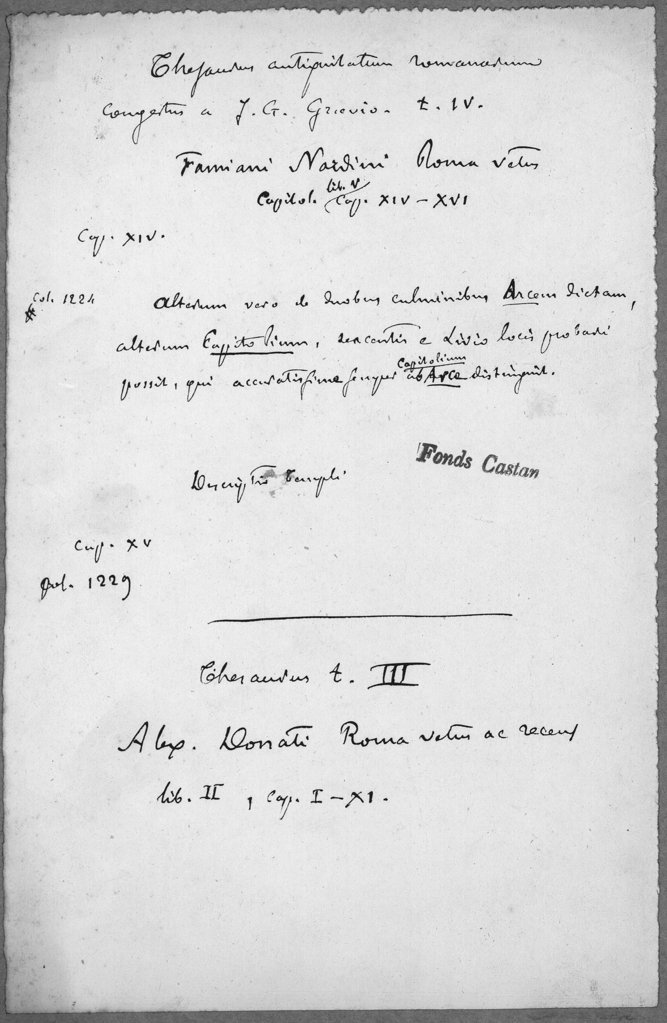 Thesaurus antiquitatum romanarum
congestus a J. G. Grævio. t. IV.
Famiani Nardini Roma vetus
lib. V
Capitol. Cap. XIV – XVI
Cap. XIV.
Col. 1224
Alterum vero de duobus culminibus Arcem dictam,
alterum Capitolium, sexcentis e Livio locis probari
possit, qui accuratissime semper Capitolium ab Arce distinguit.
Descriptio templi
Fonds Castan
Cap. XV
Col. 1229
Thesaurus t. III
Alex. Donati Roma vetus ac recens
lib. II, Cap. I – XI.